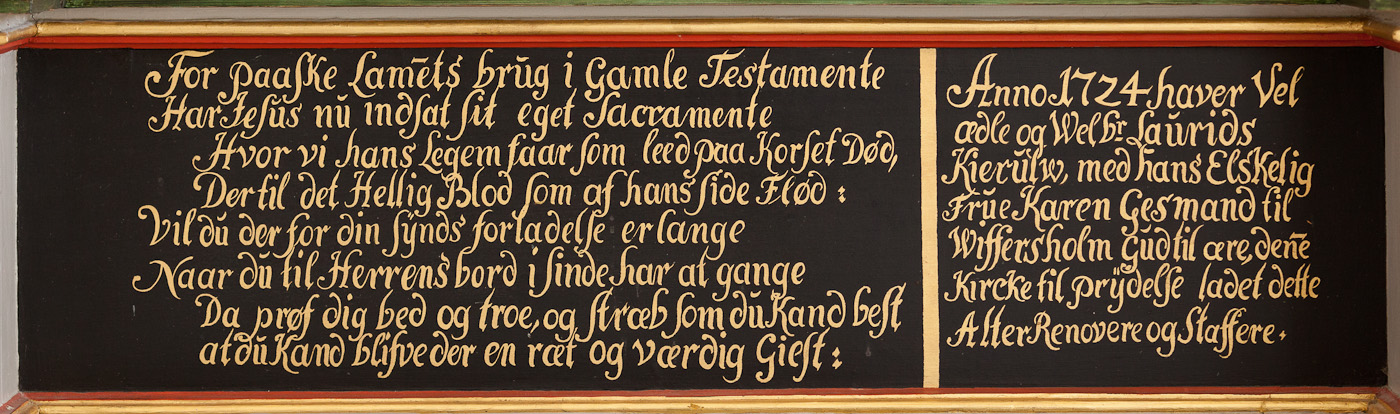 For paaſke Lam̄ets brŭg i Gamle Testamente
Har Jeſŭs nŭ indſat ſit eget Sacramente
Hvor vi hans Legem faar ſom leed paa Korſet Død,
Der til det Hellig Blod ſom af hans ſide Flød :
Vil dŭ der for din ſÿnds forladelſe erlange
Naar dŭ til Herrens bord i ſinde har at gange
Da prøf dig bed og troe, og ſtræb ſom dŭ Kand beſt
at dŭ Kand blifve der en ræt og værdig Gieſt :
Anno 1724 haver Vel
ædle og Wel br Laŭrids
Kierŭlw, med hans Elskelig
Frŭe Karen Gesmand til
Wiffersholm Gŭd til ære, den̄e
Kircke til prÿdelſe ladet dette
Alter Renovere og Staffere.